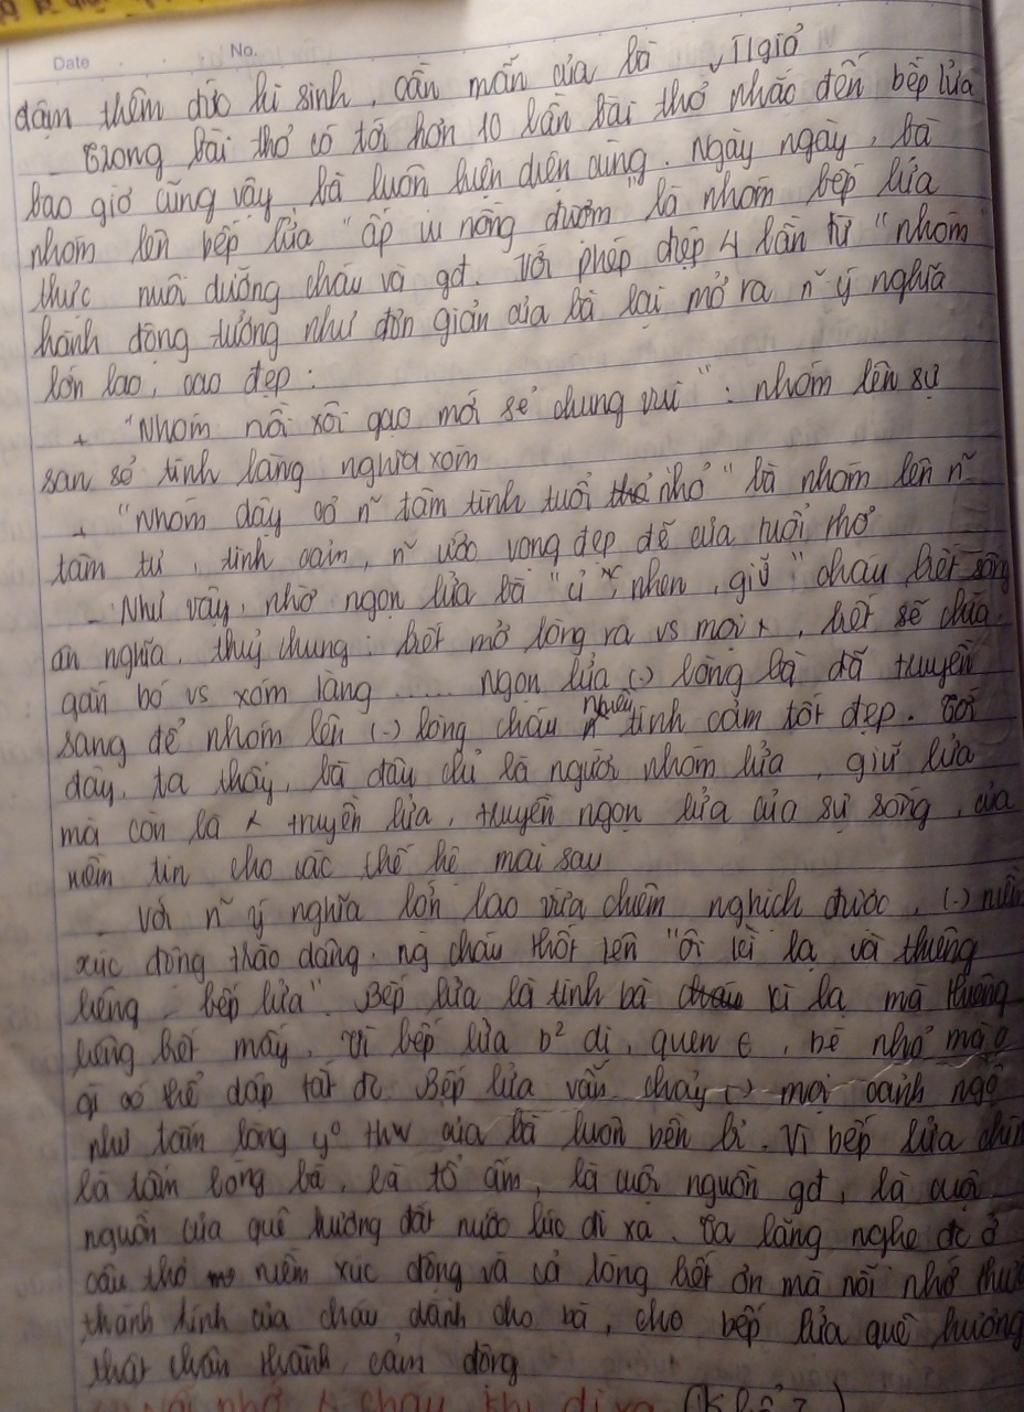 Date No.
đậm thêm đức hi sinh, cần mẫn của bà
- Trong bài thơ có tới hơn 10 lần bài thơ nhắc đến bếp lửa
bao giờ cũng vậy, bà luôn hiện diện cùng. Ngày ngày, bà
nhóm lên bếp lửa "ấp iu nồng đượm" là nhóm bếp lửa
thực nuôi dưỡng cháu và gđ. Với phép điệp 4 lần từ "nhóm"
hành động tưởng như đơn giản của bà lại mở ra n~ ý nghĩa
lớn lao, cao đẹp:
+ "Nhóm nồi xôi gạo mới sẻ chung vui": nhóm lên sự
san sẻ tình làng nghĩa xóm
+ "Nhóm dậy cả n~ tâm tình tuổi nhỏ" bà nhóm lên n~
tâm tư, tình cảm, n~ ước vọng đẹp đẽ của tuổi thơ
- Như vậy, nhờ ngọn lửa bà "ủ", nhen, giữ" cháu biết sống
ân nghĩa, thuỷ chung; biết mở lòng ra vs mọi x, biết sẻ chia,
gắn bó vs xóm làng ..... ngọn lửa (-) lòng bà đã truyền
sang để nhóm lên (-) lòng cháu nhiều tình cảm tốt đẹp. Tới
đây, ta thấy, bà đâu chỉ là người nhóm lửa, giữ lửa
mà còn là x truyền lửa, truyền ngọn lửa của sự sống, của
niềm tin cho các thế hệ mai sau
- Với n~ ý nghĩa lớn lao vừa chiêm nghiệm được, (-) niềm
xúc động trào dâng, ng cháu thốt lên "Ôi kì lạ và thiêng
liêng - bếp lửa". Bếp lửa là tình bà kì lạ mà thiêng
liêng biết mấy. Vì bếp lửa b² dị, quen €, bé nhỏ mà o
gì có thể dập tắt đc. Bếp lửa vẫn cháy (-) mọi cảnh ngộ
như tấm lòng yº thw của bà luôn bền bỉ. Vì bếp lửa chính
là tấm lòng bà, là tổ ấm, là cội nguồn gđ, là cội
nguồn của quê hương đất nước lúc đi xa. Ta lắng nghe đc ở
câu thơ niềm xúc động và cả lòng biết ơn mà nỗi nhớ
thành kính của cháu dành cho bà, cho bếp lửa quê hương
thật chân thành, cảm động